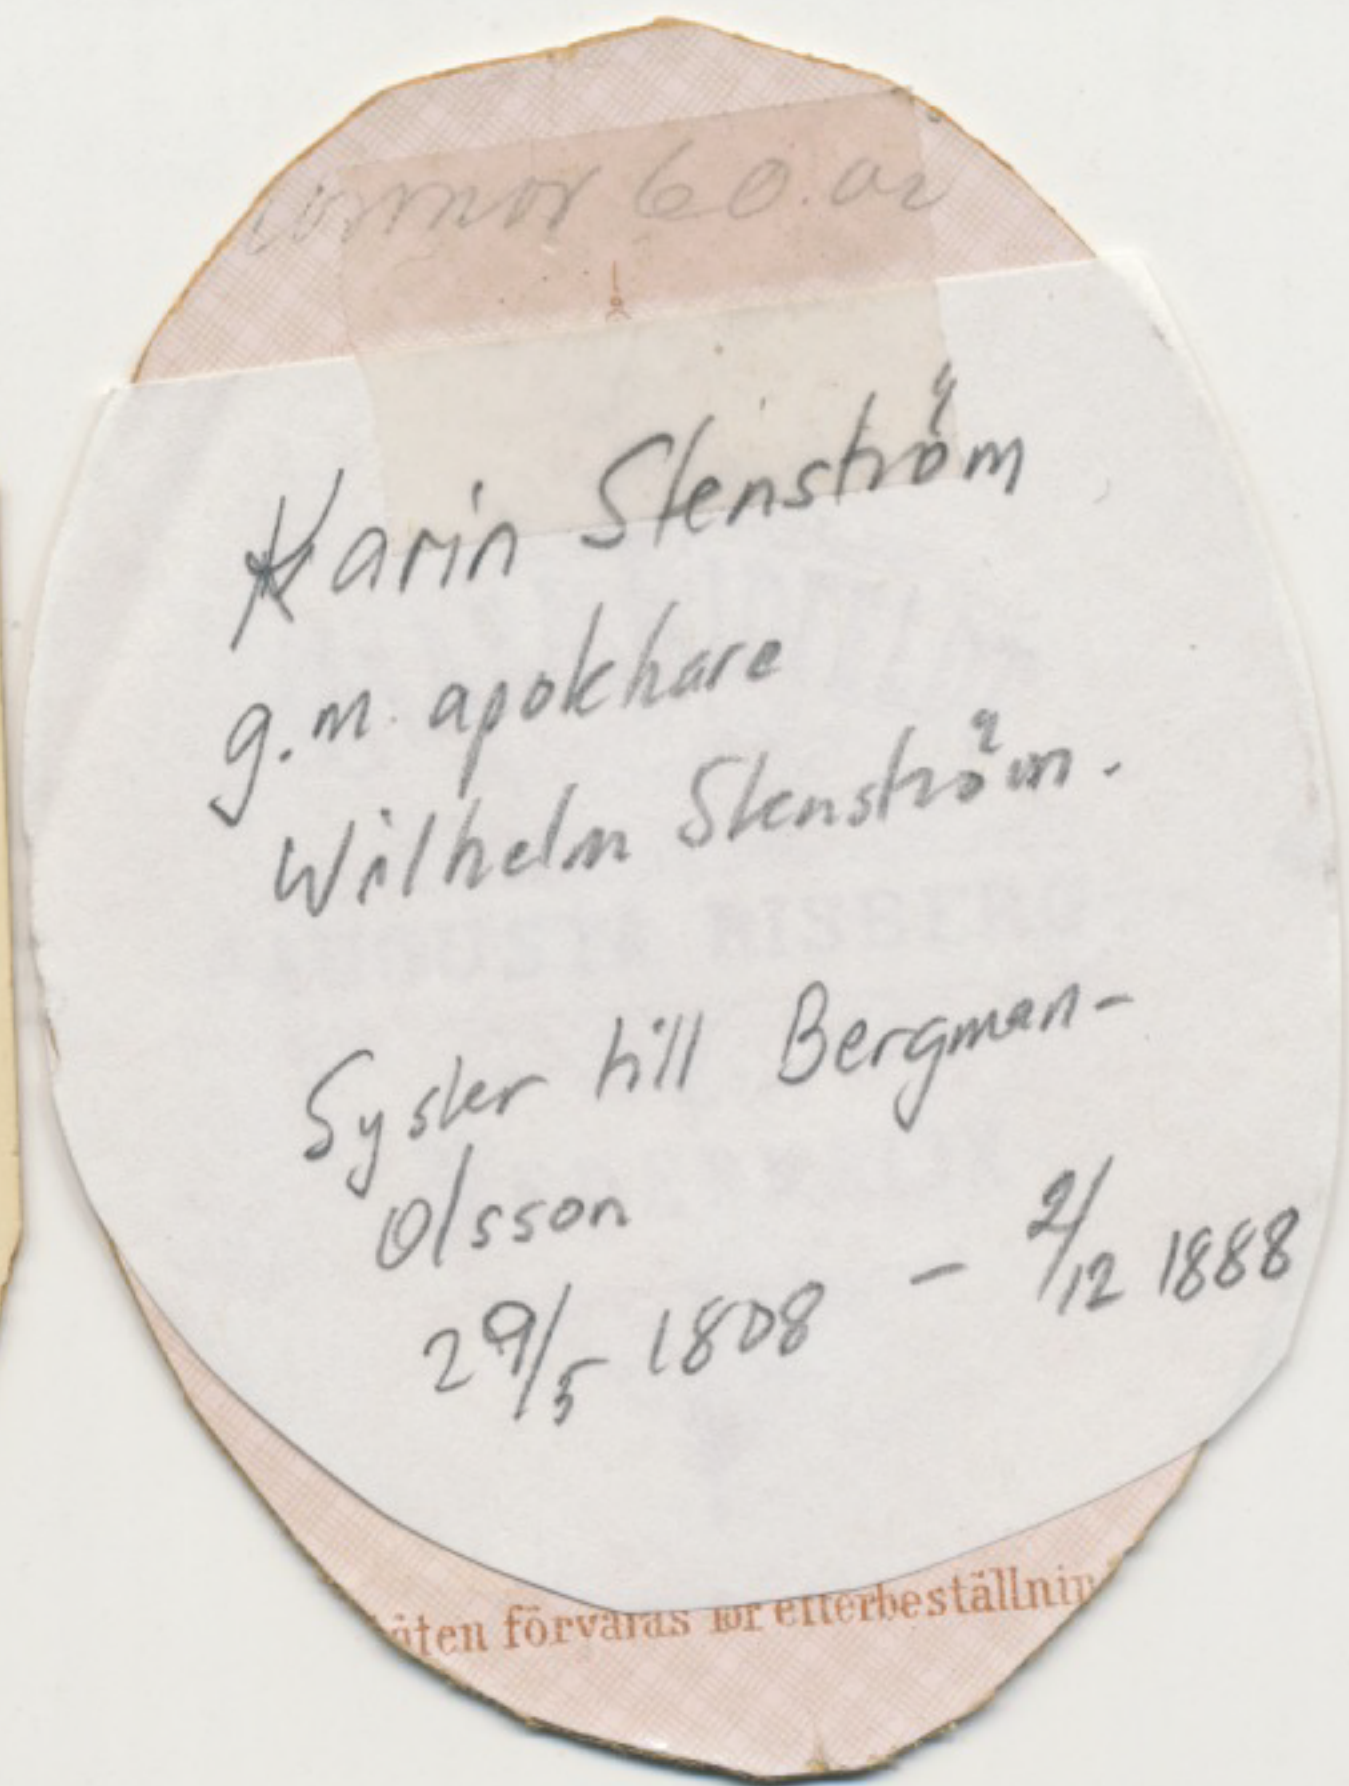 60.år
Karin Stenström
g.m. apotekare
Wilhelm Stenström.
Syster till Bergman-
Olsson
29/5 1808 - 2/12 1888
förvaras för efterbeställnin